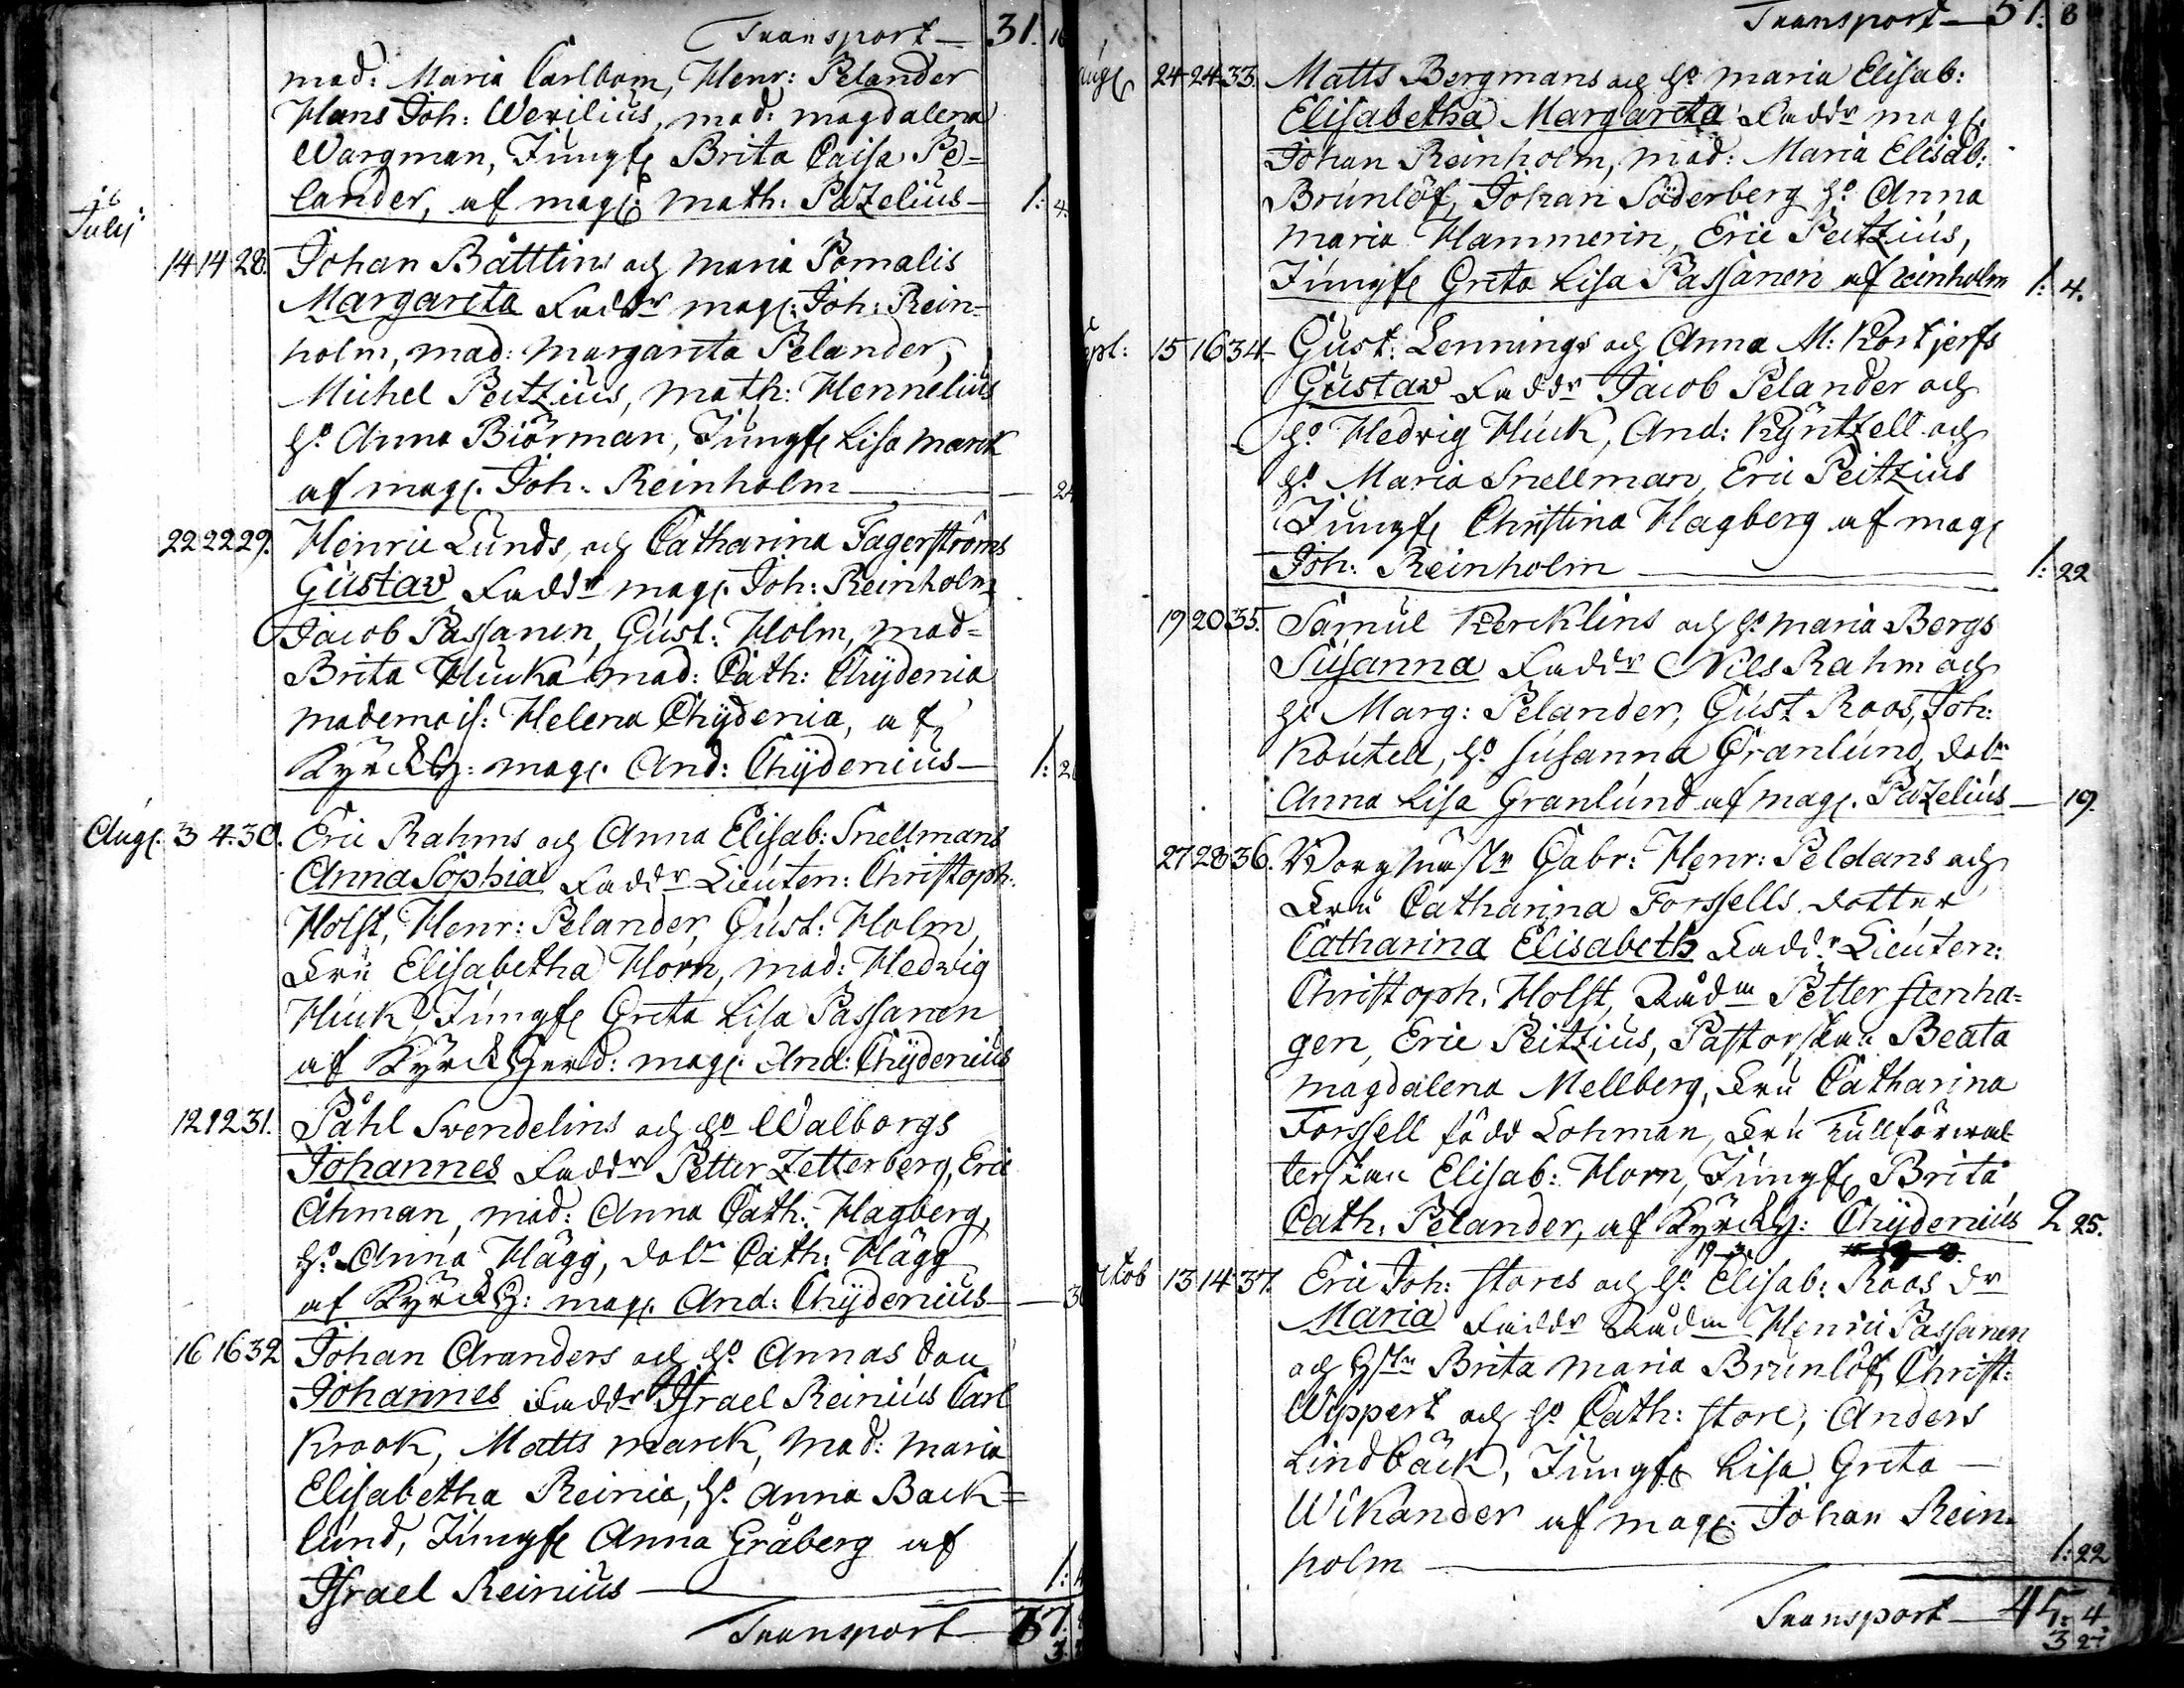 Transport — 31.
mad: Maria Carlbom, Henr: Pelander
Hans Joh: Wexilius, mad: Magdalena
Wargman, Jungf. Brita Caisa Pe=
lander, af mag. Math: Pazelius — 1: 4.
July
14 14 28. Johan Båttlins och Maria Pomalis
Margareta Faddr mag. Joh: Rein=
holm, mad: Margareta Pelander,
Michel Peitzius, Math: Hennelius
h:o Anna Biörman, Jungf. Lisa Marck
af mag. Joh: Reinholm — 24
22 22 29. Henric Lunds, och Catharina Fagerströms
Gustav Faddr mag. Joh: Reinholm
Jacob Passanen, Gust: Holm, mad=
Brita Hucka mad: Cath: Chydenia
mademois: Helena Chydenia, af
Kyrckh: mag. And: Chydenius — 1:
Aug. 3 4. 30. Eric Rahms och Anna Elisab: Snellmans
Anna Sophia Faddr Lieuten: Christoph:
Holst, Henr: Pelander, Gust: Holm,
Fru Elisabetha Horn, mad: Hedvig
Huck, Jungf. Greta Lisa Passanen
af Kyrckherd: mag. And: Chydenius
12 12 31. Påhl Svendelins och h:o Walborgs
Johannes Faddr Petter Zetterberg, Eric
Åhman, mad: Anna Cath: Hagberg,
h:o Anna Hägg, dotr Cath: Hägg
af Kyrckh: mag. And: Chydenius —
16 16 32 Johan Aranders och h:o Annas son
Johannes Faddr Israel Reinius Carl
Krook, Matts Marck, mad: Maria
Elisabetha Reinia, h:o Anna Back=
lund, Jungf. Anna Gråberg af
Israel Reinius — 1:
Transport — 37.
Transport — 37: 8
Aug. 24 24 33. Matts Bergmans och h:o Maria Elisab:
Elisabetha Margareta Faddr mag.
Johan Reinholm, mad: Maria Elisab:
Brunlöf, Johan Söderberg h:o Anna
Maria Hammerin, Eric Peitzius,
Jungf. Greta Lisa Passanen af Reinholm 1: 4.
ept: 15 16 34. Gust: Lennings och Anna M: Kortjerfs
Gustav Faddr Jacob Pelander och
h:o Hedvig Huck, And: Kyntzell och
h:o Maria Snellman, Eric Peitzius
Jungf. Christina Hagberg af mag.
Joh: Reinholm — 1: 22
19 20 35. Samul Kercklins och h:o Maria Bergs
Susanna Faddr Nils Rahm och
h:o Marg: Pelander, Gust Roos, Joh:
Koutell, h:o Susanna Granlund, dotr
Anna Lisa Granlund af mag. Pazelius — 19.
27 28 36. Borgmästr Gabr: Henr: Peldans och
Fru Catharina Forssells dotter
Catharina Elisabeth Faddr Lieuten:
Christoph. Holst, Rådm Petter Stenha=
gen, Eric Peitzius, Pastorskan Beata
Magdalena Mellberg, Fru Catharina
Forssell född Lohman, Fru Tullförwal
terskan Elisab: Horn, Jungf. Brita
Cath. Pelander, af Kyrckh: Chydenius 2 25.
ctob 13 14 37. Eric Joh: Stores och h:o Elisab: Roos dr
Maria Faddr Rådm Henric Passanen
och hstr Brita Maria Brunlöf, Christ:
Wippert och h:o Cath: Store, Anders
Lindbäck, Jungf. Lisa Greta —
Wikander af mag. Johan Rein=
holm — 1: 22
Transport — 45: 4